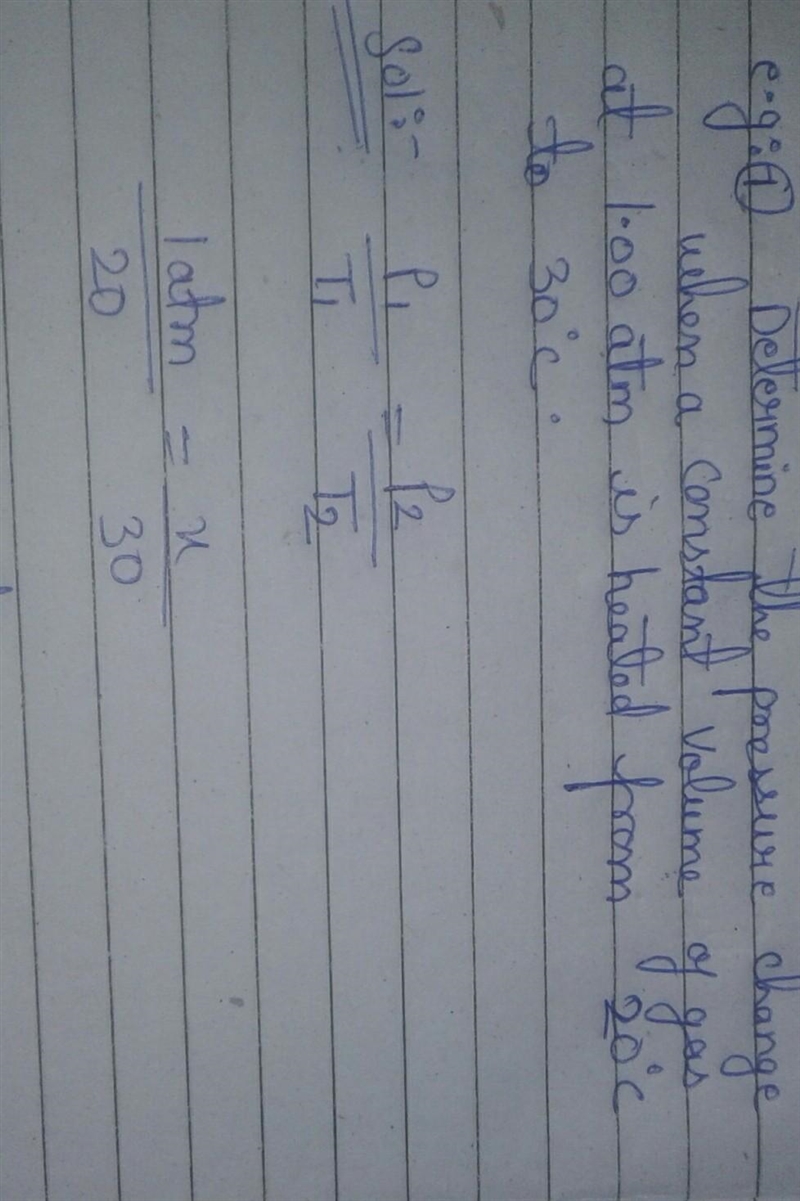 e.g:① Determine the pressure change
when a constant volume of gas
at 1.00 atm is heated from 20°C
to 30°C.
Sol:- P₁/T₁ = P₂/T₂
1atm/20 = x/30